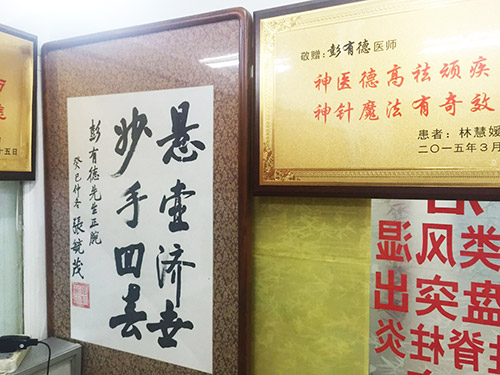 十五日
悬壺济世
妙手回春
彭有德先生正腕
癸巳仲冬 張毓茂
敬赠：彭有德医师
神医德高祛顽疾
神针魔法有奇效
患者：林慧媛
二○一五年3月
类风湿
盘突出
脊柱炎